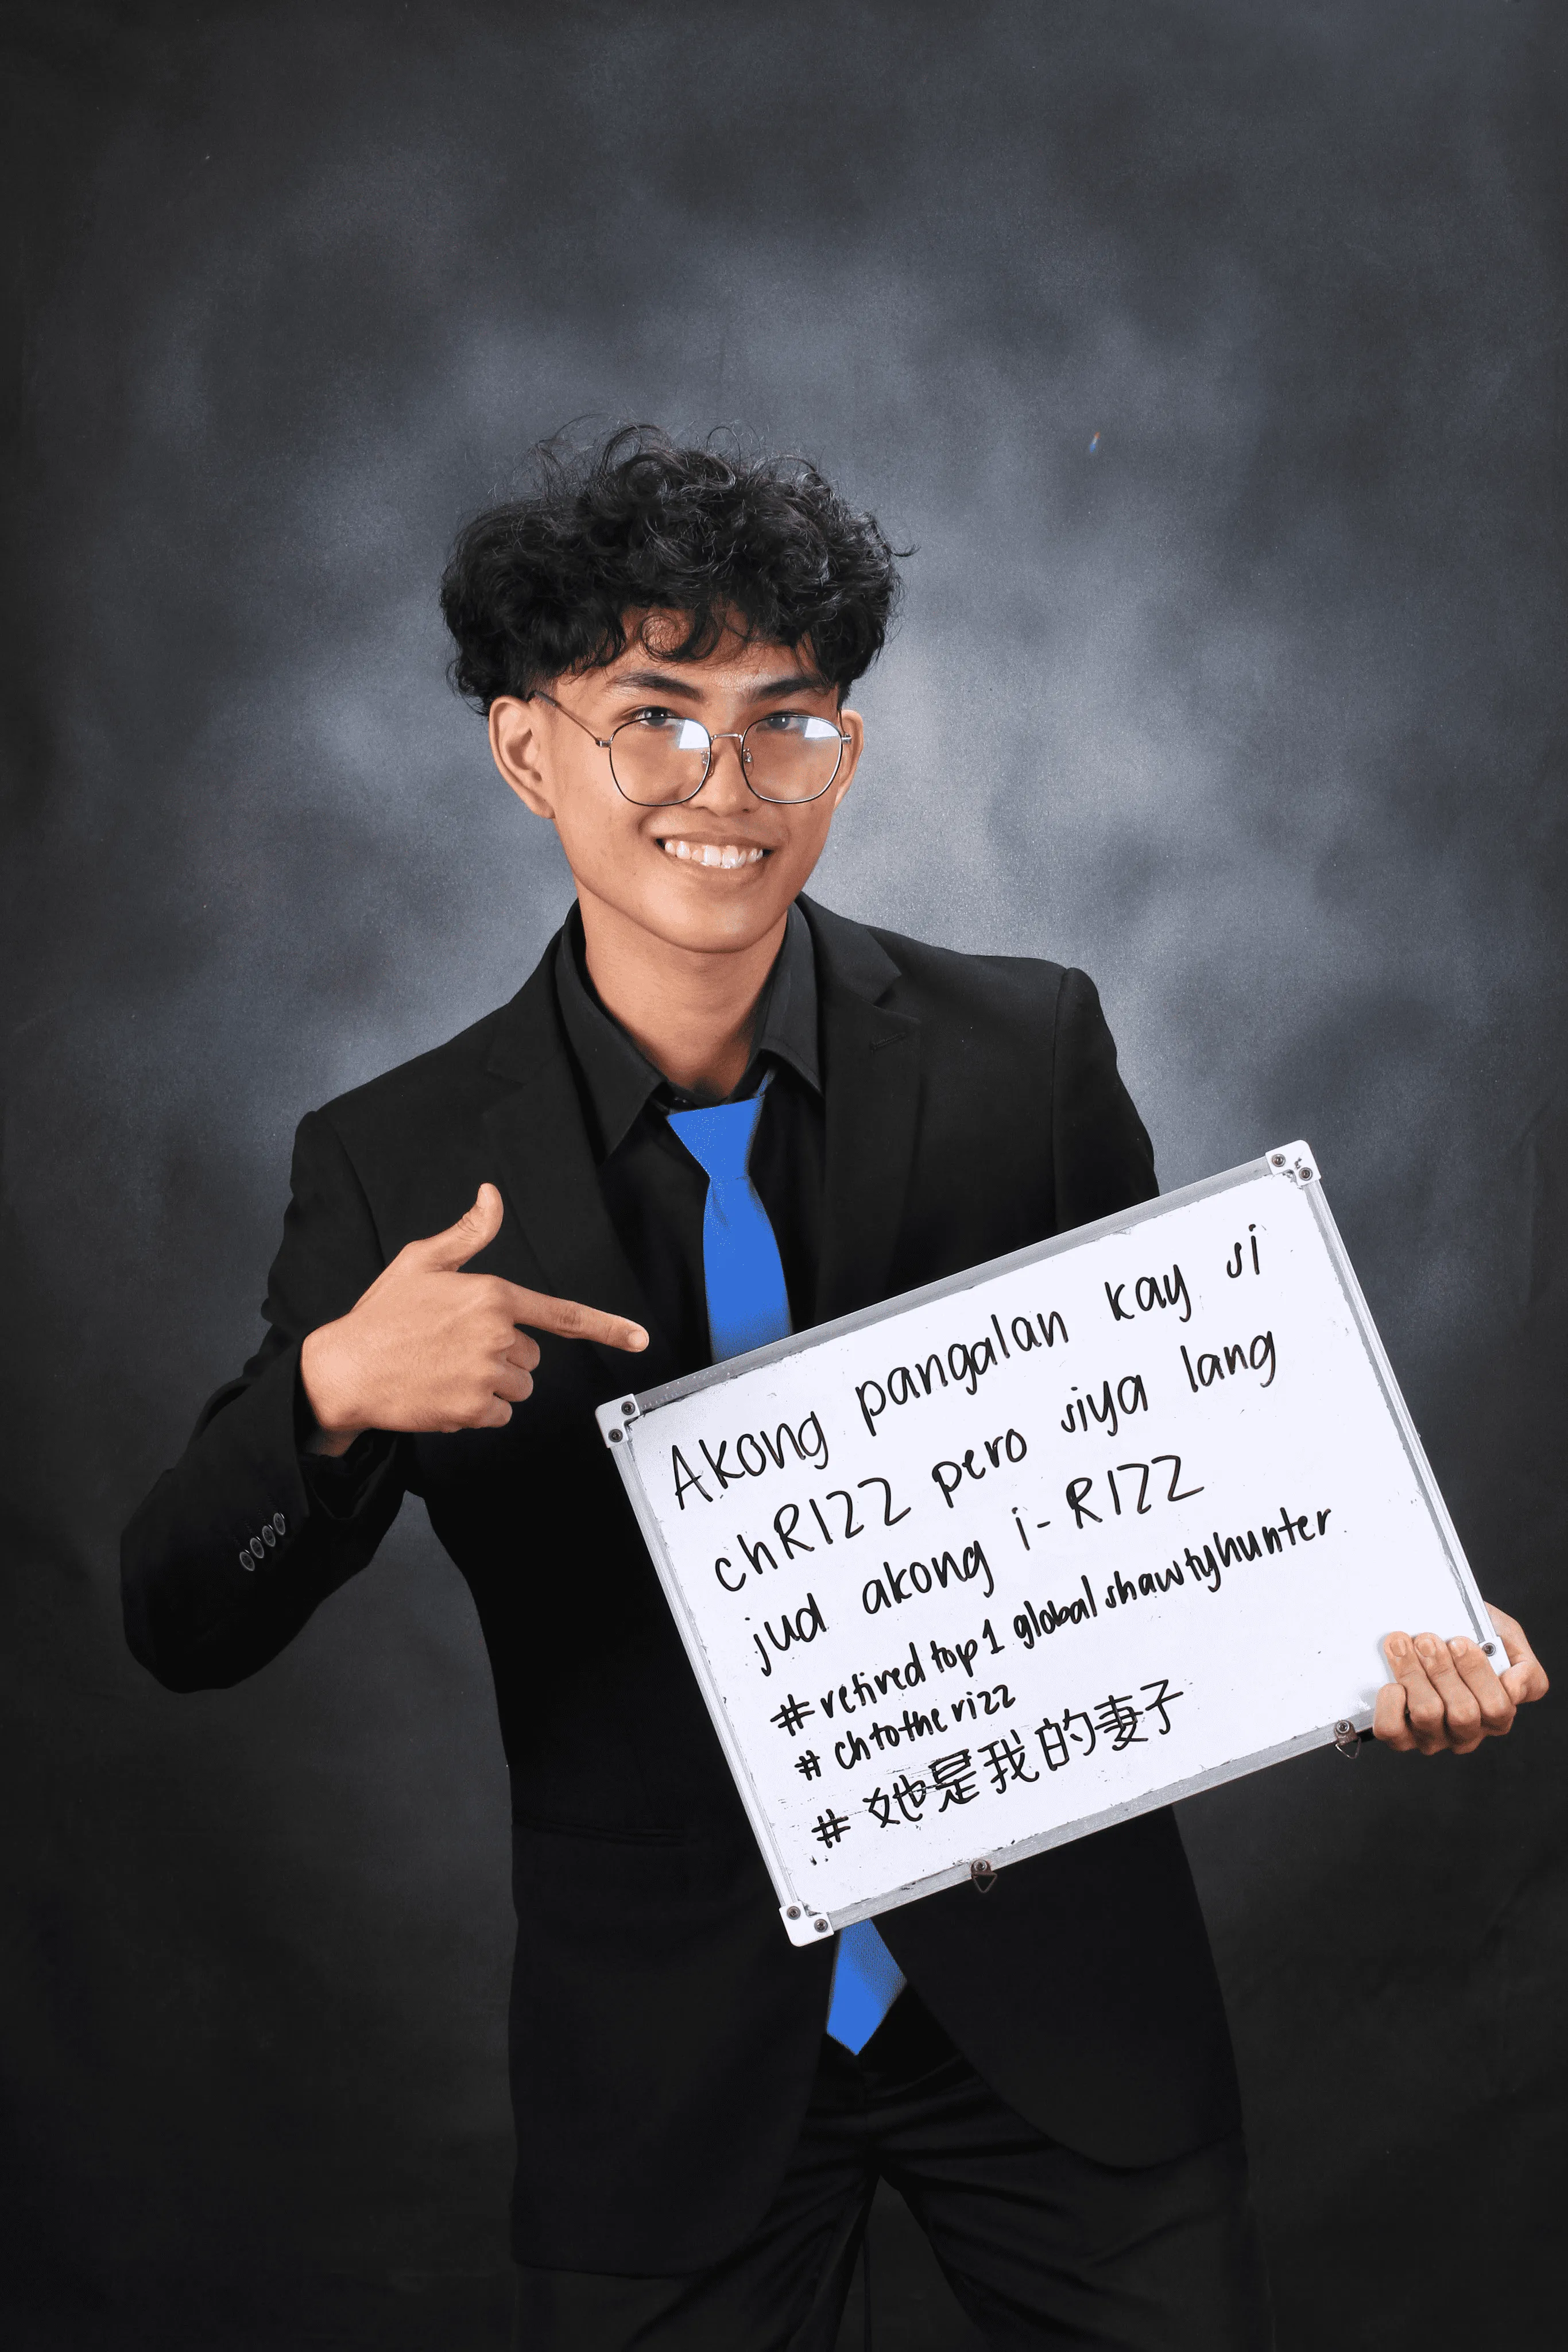 Akong pangalan kay si
chRIZZ pero siya lang
jud akong i-RIZZ
#retired top 1 global shawtyhunter
# ch to the rizz
# 她是我的妻子